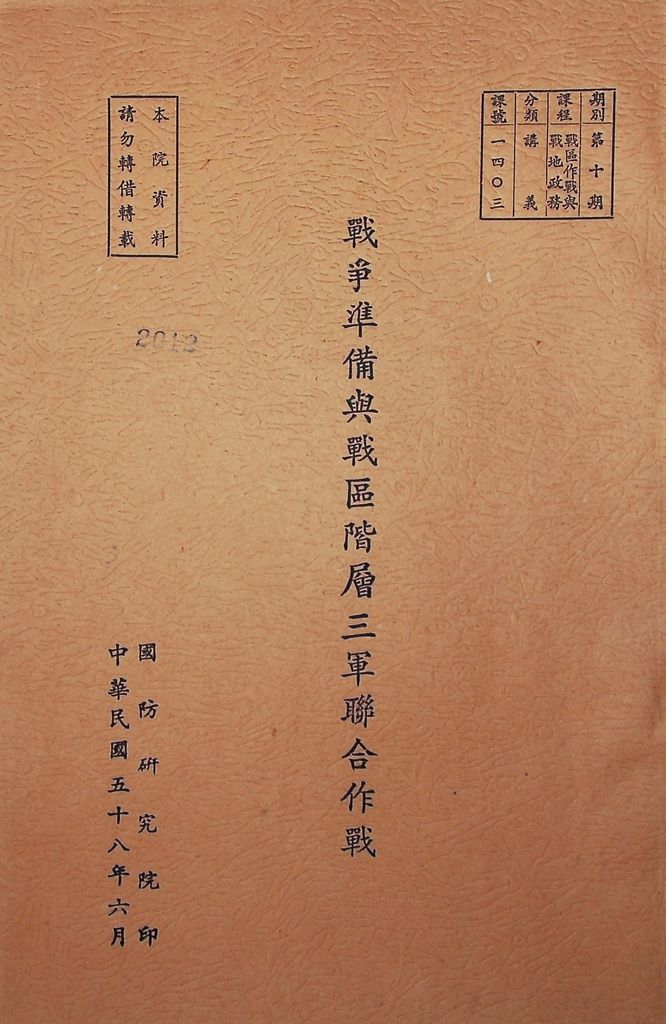 期別 第十期
課程 戰區作戰與戰地政務
分類 講義
課號 一四〇三
戰爭準備與戰區階層三軍聯合作戰
本院資料
請勿轉借轉載
2012
國防研究院印
中華民國五十八年六月